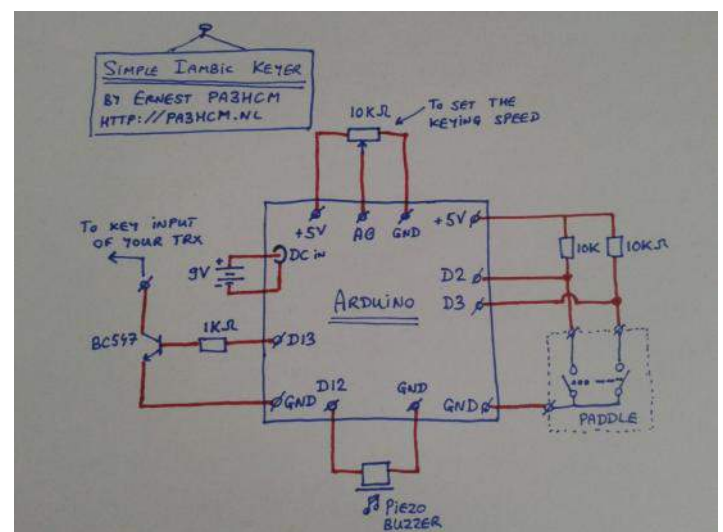 SIMPLE IAMBIC KEYER
BY ERNEST PA3HCM
HTTP://PA3HCM.NL
10KΩ
TO SET THE
KEYING SPEED
+5V
A0
GND
TO KEY INPUT
OF YOUR TRX
9V
+
-
DC in
+5V
10K
10KΩ
D2
D3
ARDUINO
BC547
1KΩ
D13
GND
D12
GND
GND
PADDLE
PIEZO
BUZZER